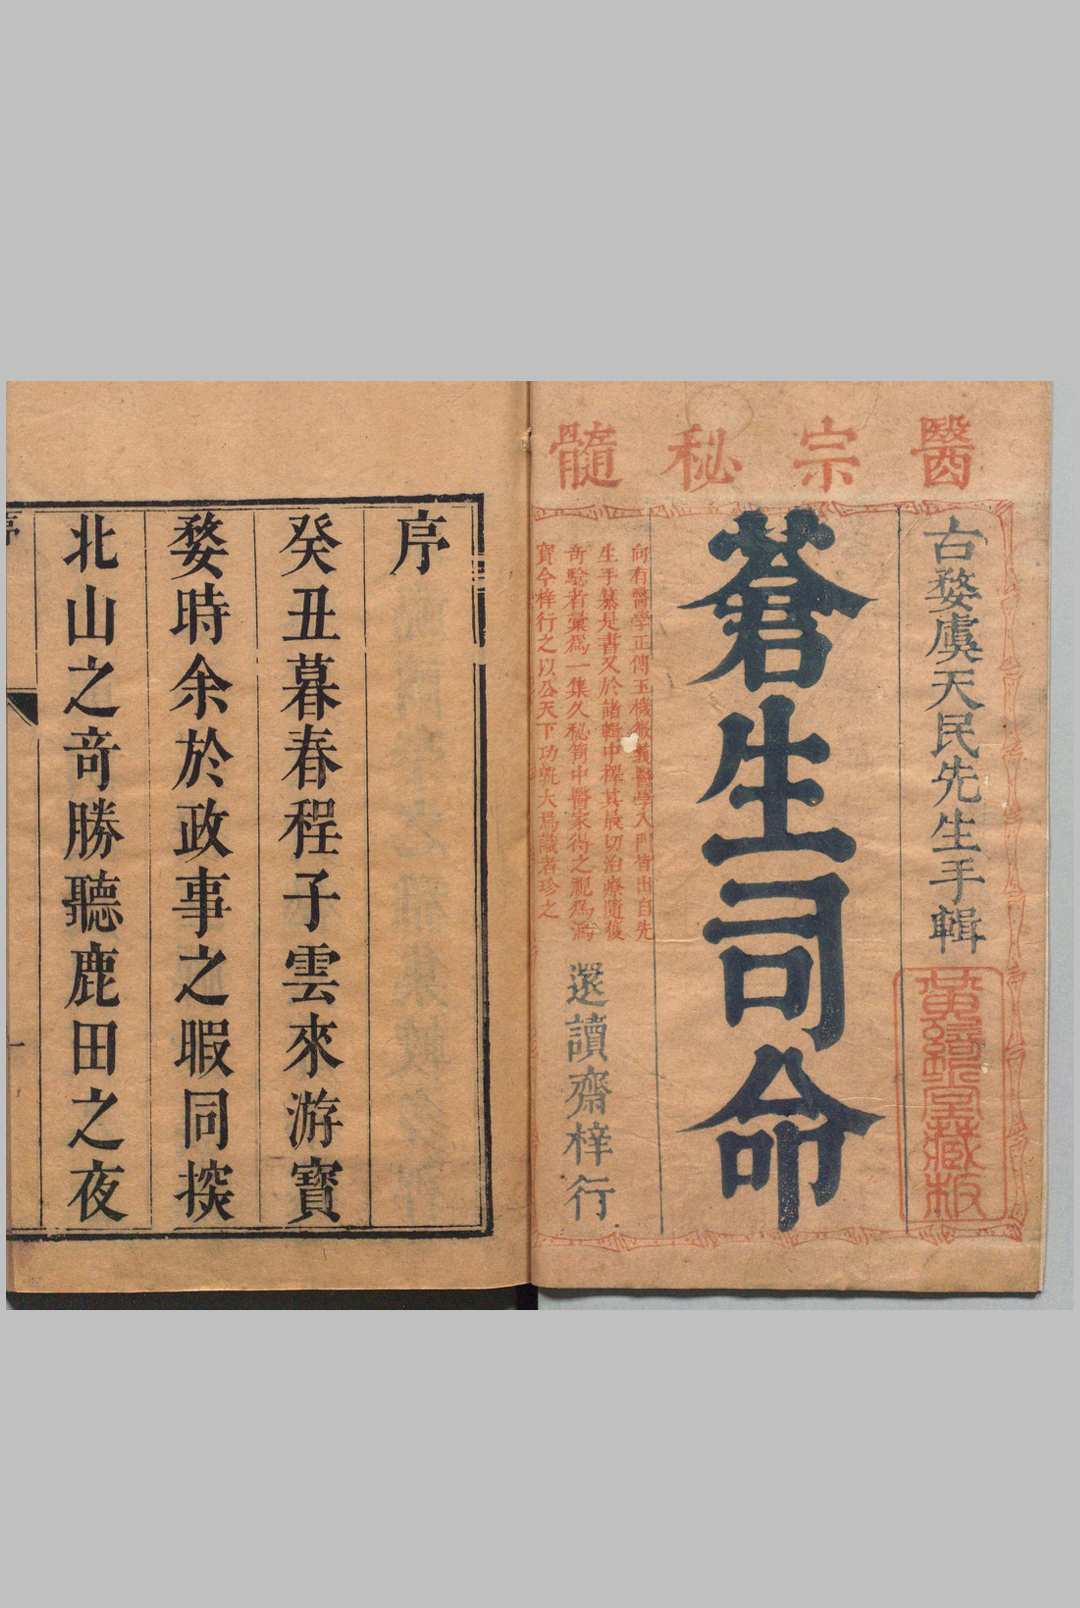 醫宗秘髓
古婺虞天民先生手輯
蒼生司命
向有醫學正傳玉機微義醫學入門皆出自先
生手纂是書又於諸輯中擇其最切治療隨獲
奇驗者彙爲一集久秘笥中醫家得之視爲鴻
寶今梓行之以公天下功甚大焉識者珍之
還讀齋梓行
藏板
序
癸丑暮春程子雲來游寶
婺時余於政事之暇同探
北山之竒勝聽鹿田之夜
序
一